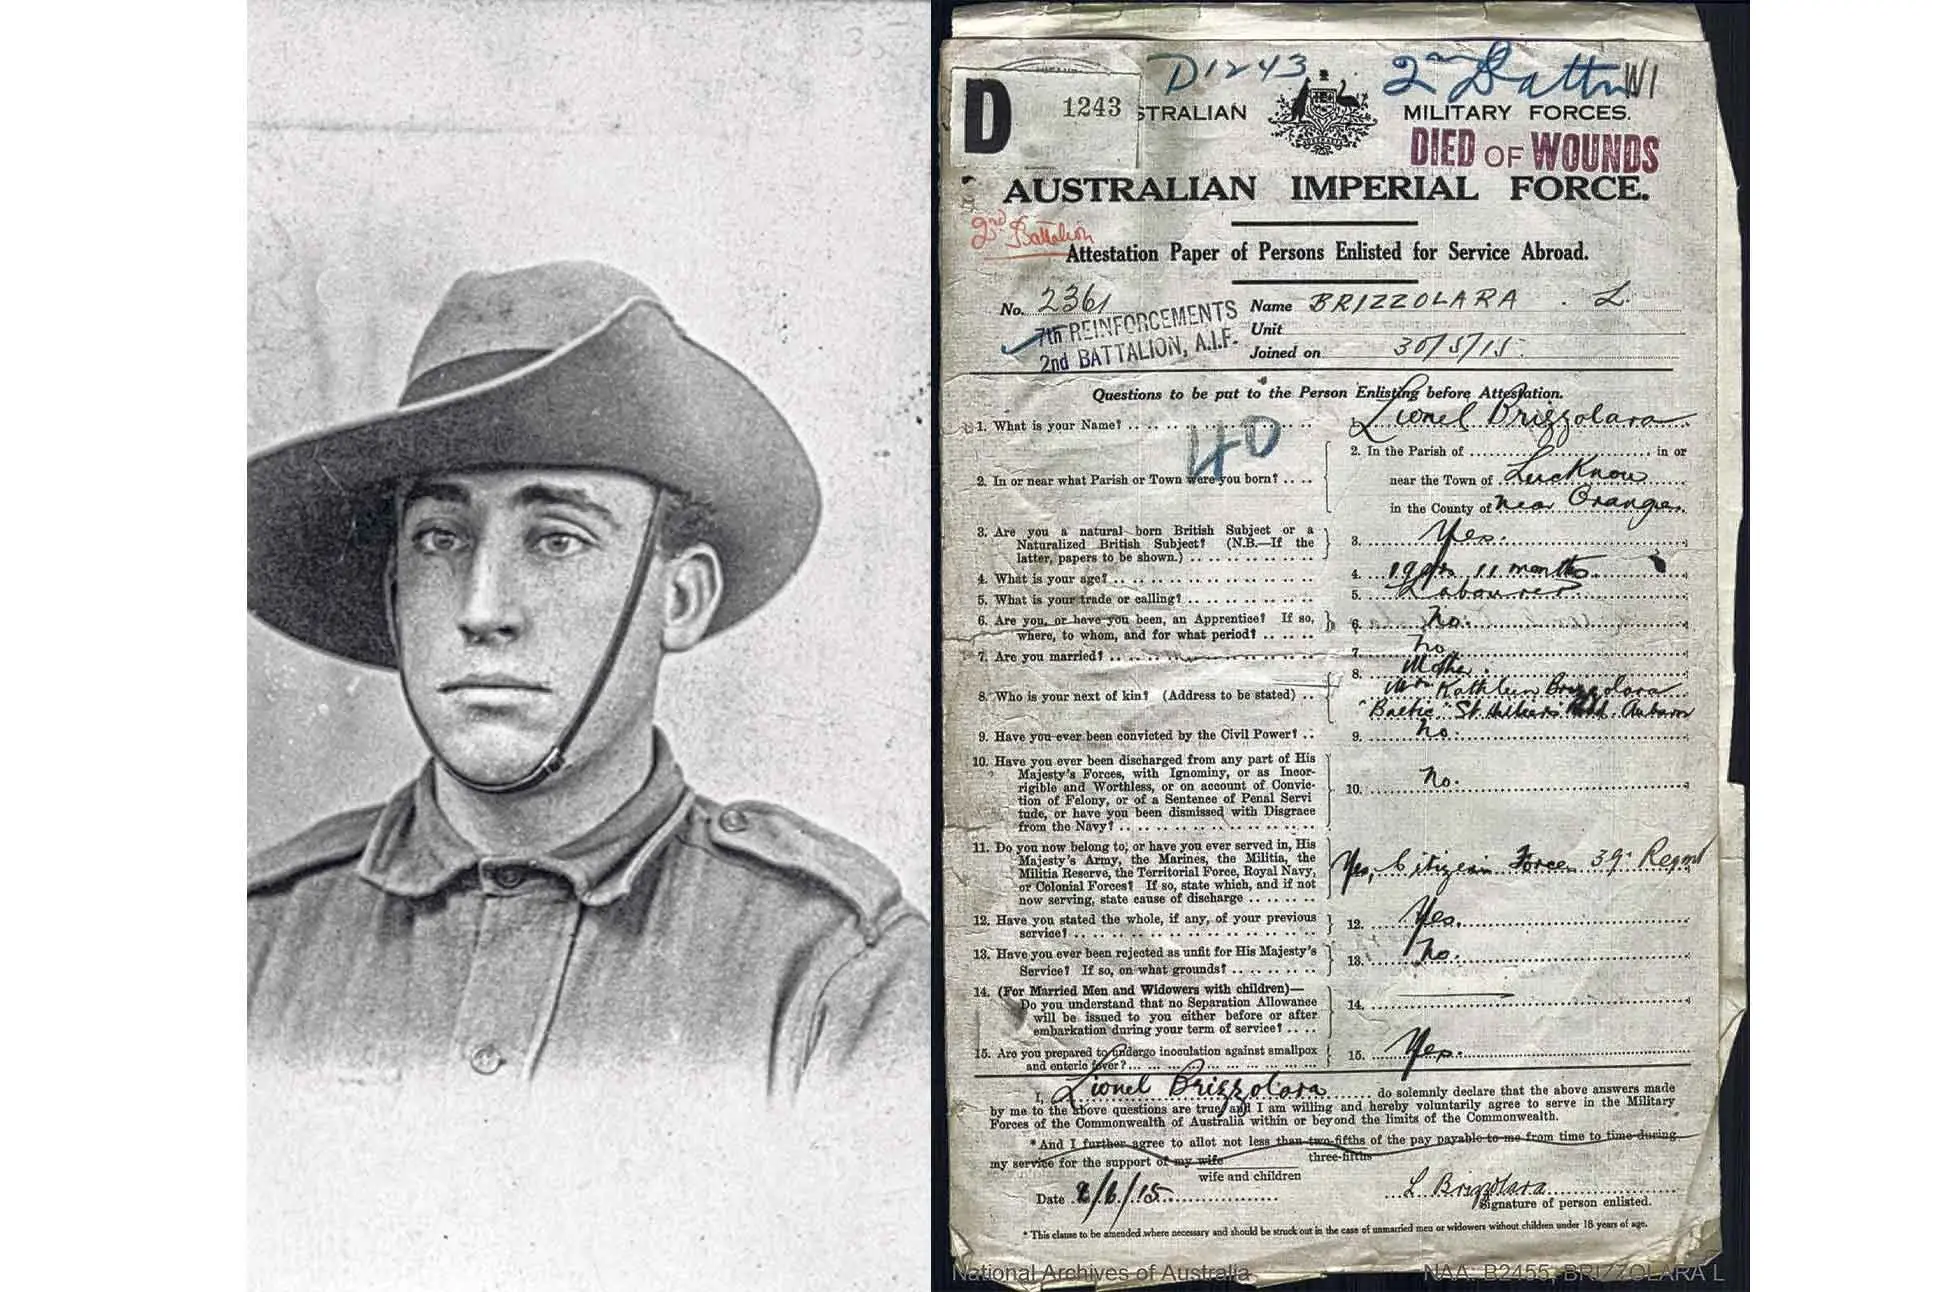 D1243 2nd Battn W1
D 1243 STRALIAN MILITARY FORCES.
DIED OF WOUNDS
AUSTRALIAN IMPERIAL FORCE.
2nd Battalion
Attestation Paper of Persons Enlisted for Service Abroad.
No. 2361 Name BRIZZOLARA . L.
7th REINFORCEMENTS
2nd BATTALION, A.I.F.
Unit
Joined on 30/5/15.
Questions to be put to the Person Enlisting before Attestation.
1. What is your Name? 1. Lionel Brizzolara
40
2. In the Parish of in or
2. In or near what Parish or Town were you born? near the Town of Lucknow
in the County of near Orange
3. Are you a natural born British Subject or a
Naturalized British Subject? (N.B.—If the
latter, papers to be shown.) 3. Yes.
4. What is your age? 4. 19 yrs 11 months
5. What is your trade or calling? 5. Labourer
6. Are you, or have you been, an Apprentice? If so,
where, to whom, and for what period? 6. No.
7. Are you married? 7. No.
8. Who is your next of kin? (Address to be stated) 8. Mother.
Mrs Kathleen Brizzolara
"Baltic" St Hilliers Rd. Auburn
9. Have you ever been convicted by the Civil Power? 9. No.
10. Have you ever been discharged from any part of His
Majesty's Forces, with Ignominy, or as Incor-
rigible and Worthless, or on account of Convic-
tion of Felony, or of a Sentence of Penal Servi
tude, or have you been dismissed with Disgrace
from the Navy? 10. No.
11. Do you now belong to, or have you ever served in, His
Majesty's Army, the Marines, the Militia, the
Militia Reserve, the Territorial Force, Royal Navy,
or Colonial Forces? If so, state which, and if not
now serving, state cause of discharge Yes, Citizen Force 39 Regmt
12. Have you stated the whole, if any, of your previous
service? 12. Yes.
13. Have you ever been rejected as unfit for His Majesty's
Service? If so, on what grounds? 13. No.
14. (For Married Men and Widowers with children)—
Do you understand that no Separation Allowance
will be issued to you either before or after
embarkation during your term of service? 14.
15. Are you prepared to undergo inoculation against smallpox
and enteric fever? 15. Yes.
I, Lionel Brizzolara do solemnly declare that the above answers made
by me to the above questions are true, and I am willing and hereby voluntarily agree to serve in the Military
Forces of the Commonwealth of Australia within or beyond the limits of the Commonwealth.
*And I further agree to allot not less than two-fifths of the pay payable to me from time to time during
three-fifths
my service for the support of my wife
wife and children
Date 2/6/15 L Brizzolara
Signature of person enlisted.
* This clause to be amended where necessary and should be struck out in the case of unmarried men or widowers without children under 18 years of age.
National Archives of Australia NAA: B2455, BRIZZOLARA L